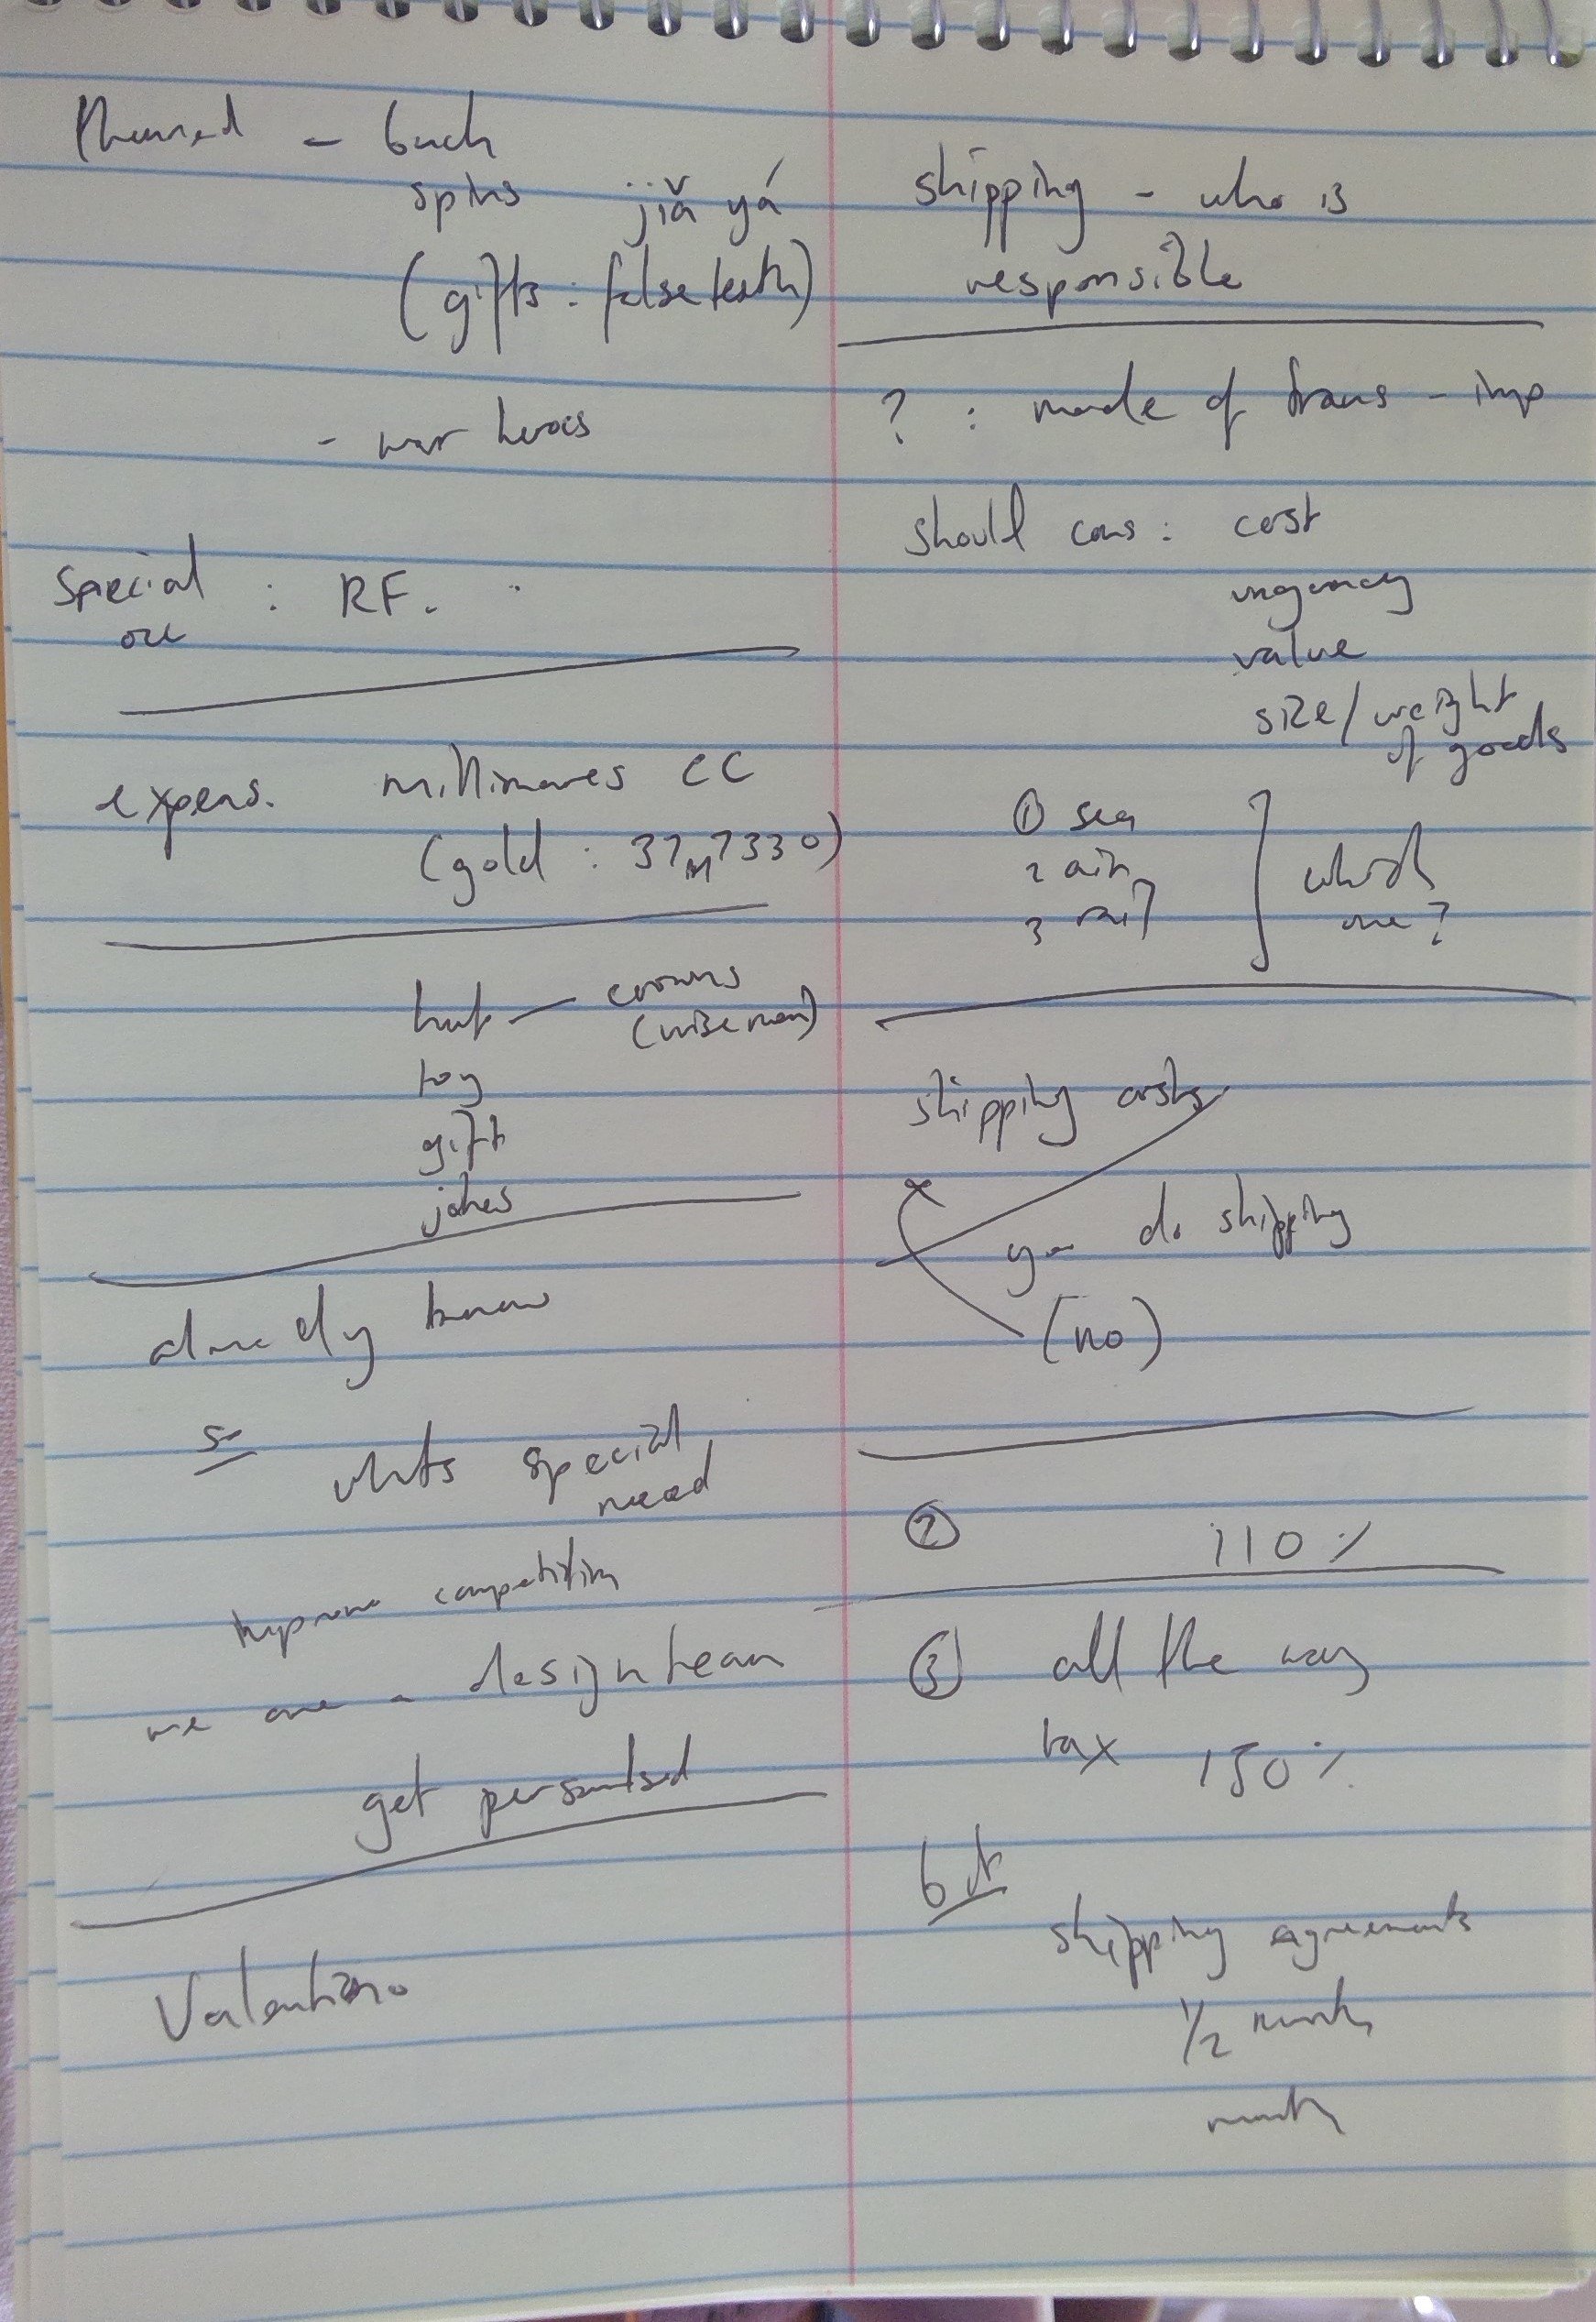 Themed -
spins jiǎ yá
(gifts: false teeth)
- war heroes
Special : RF.
occ
expens. millionaires CC
(gold : 37M7330)
hat — crowns
(wise men)
toy
gift
jokes
already know
so
whats special
need
improve competition
we are a design team
get personalised
Valentino
shipping - who is
responsible
? : mode of trans - imp
should cons : cost
urgency
value
size/weight
of goods
① sea
2 air
3 rail
which
one?
shipping costs
you do shipping
(no)
② 110%
③ all the way
tax 150%
but
shipping agreements
1/2 month
month